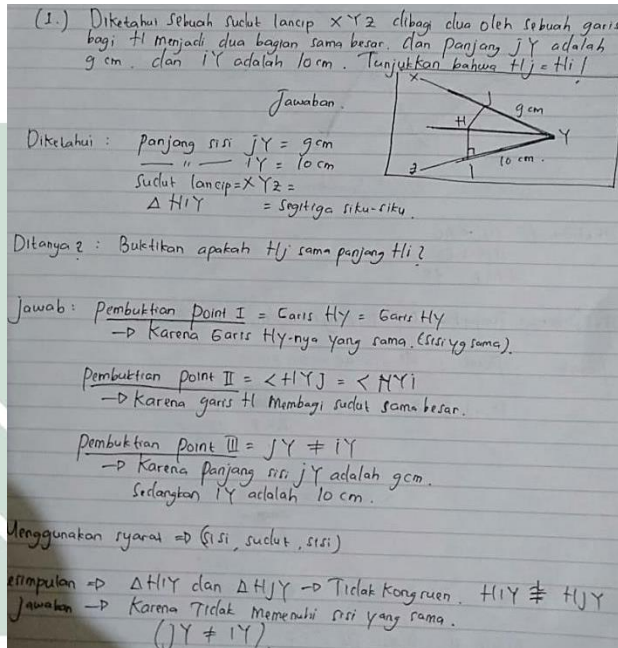 (1.) Diketahui sebuah sudut lancip XYZ dibagi dua oleh sebuah garis
bagi H menjadi dua bagian sama besar. dan panjang jY adalah
9 cm. dan iY adalah 10 cm. Tunjukkan bahwa Hj = Hi!
Jawaban.
X
J
9 cm
H
Y
10 cm.
Z
I
Dikelahui : panjang sisi jY = 9 cm
— " — iY = 10 cm
Sudut lancip = XYZ =
Δ HIY = segitiga siku-siku.
Ditanya ? : Buktikan apakah Hj sama panjang Hi ?
Jawab : Pembuktian Point I = Garis HY = Garis HY
→ Karena Garis HY-nya yang sama. (sisi yg sama).
Pembuktian Point II = <HYJ = <HYi
→ Karena garis H Membagi sudut sama besar.
Pembuktian Point III = JY ≠ iY
→ Karena panjang sisi jY adalah 9 cm.
Sedangkan iY adalah 10 cm.
Menggunakan syarat ⇒ (sisi, sudut, sisi)
esimpulan ⇒ Δ HIY dan Δ HJY → Tidak Kongruen. HIY ≇ HJY
Jawaban → Karena Tidak Memenuhi sisi yang sama.
(JY ≠ IY)